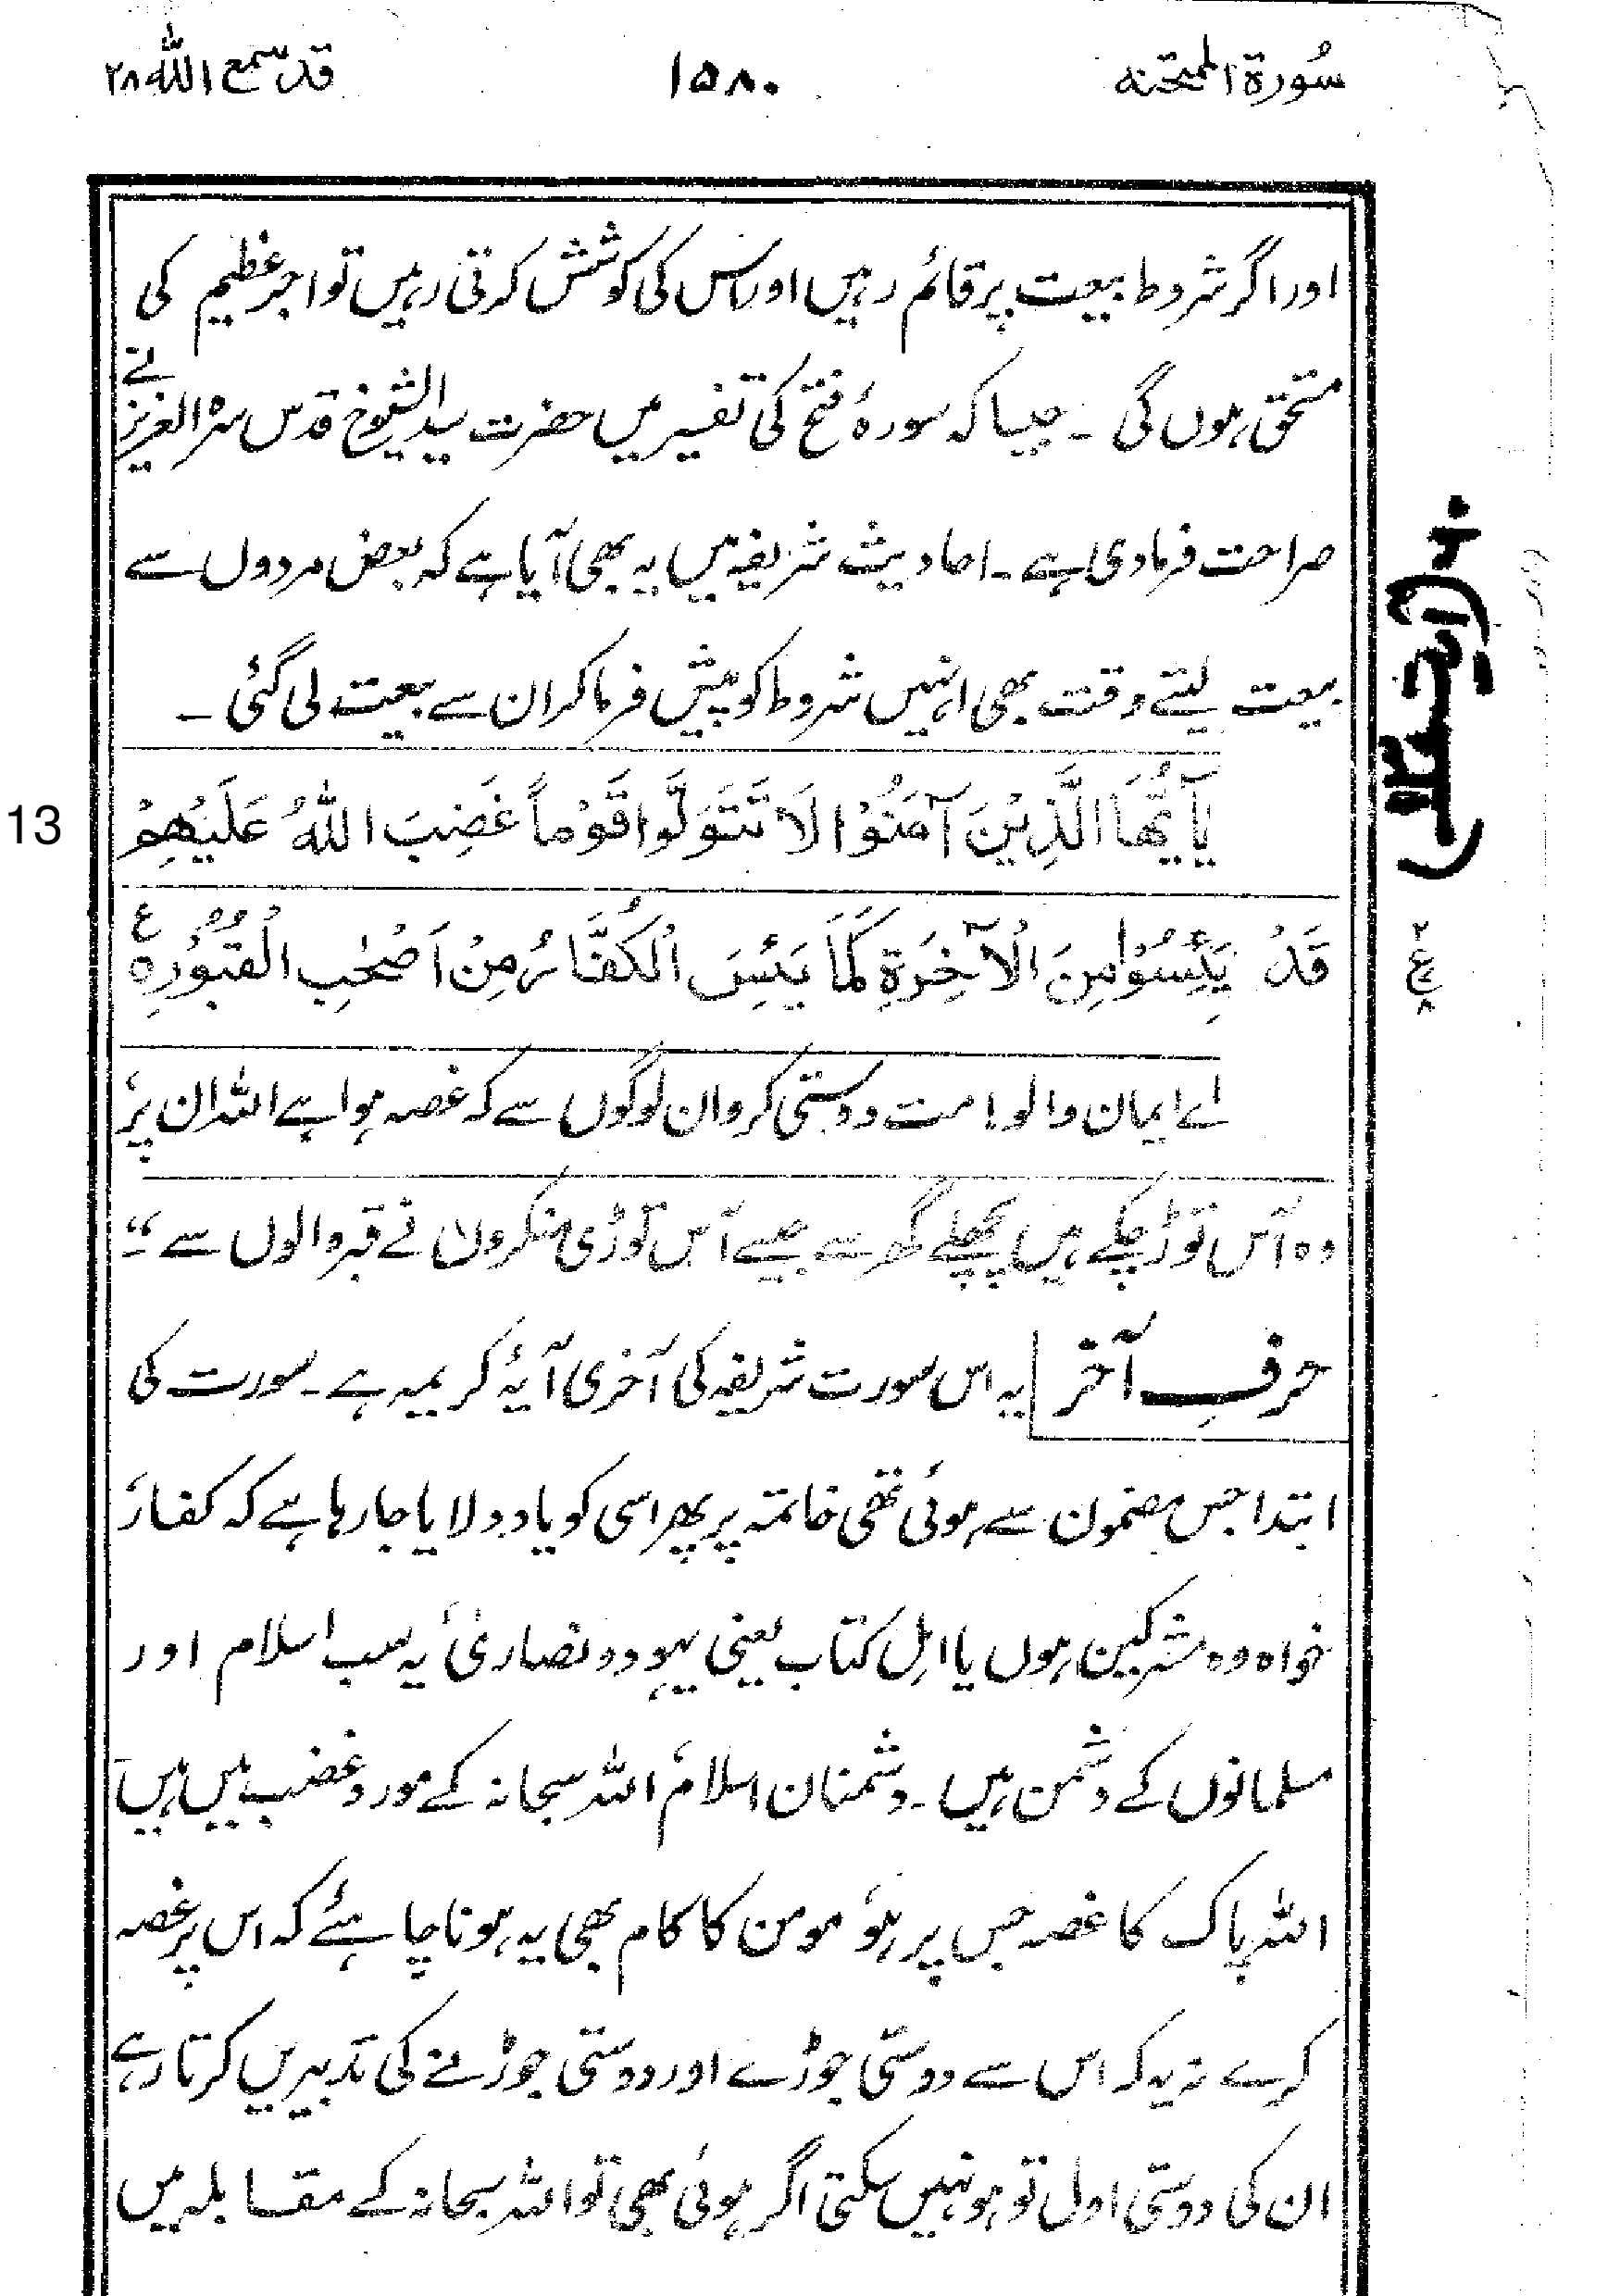 سُورۃ الممتحنہ
۱۵۸۰
قد سمع اللہ ۲۸
اور اگر شروط بیعت پر قائم رہیں اور اس کی کوشش کرتی رہیں تو اجر عظیم کی
مستحق ہوں گی ۔ جیسا کہ سورۂ فتح کی تفسیر میں حضرت سید الشیوخ قدس سرہ العزیز نے
صراحت فرمادی ہے ۔ احادیث شریفہ میں یہ بھی آیا ہے کہ بعض مردوں سے
بیعت لیتے وقت بھی انہیں شروط کو پیش فرما کر ان سے بیعت لی گئی ۔
13
يٰٓاَيُّهَا الَّذِيْنَ آمَنُوْا لَا تَتَوَلَّوْا قَوْماً غَضِبَ اللّٰهُ عَلَيْهِمْ
قَدْ يَئِسُوْا مِنَ الْآخِرَةِ كَمَا يَئِسَ الْكُفَّارُ مِنْ اَصْحٰبِ الْقُبُوْرِ ۝ ع
۲
ع
۸
اے ایمان والو! مت دوستی کرو ان لوگوں سے کہ غصہ ہوا ہے اللہ ان پر،
وہ آس توڑ چکے ہیں پچھلے گھر سے جیسے آس توڑی منکروں نے قبر والوں سے “۔
حرفِ آخر یہ اس سورت شریفہ کی آخری آیۂ کریمہ ہے ۔ سورت کی
ابتدا جس مضمون سے ہوئی تھی خاتمہ پر پھر اسی کو یاد دلایا جا رہا ہے کہ کفار،
خواہ وہ مشرکین ہوں یا اہل کتاب یعنی یہود و نصاریٰ، یہ سب اسلام اور
مسلمانوں کے دشمن ہیں ۔ دشمنان اسلام، اللہ سبحانہ کے مورد غضب ہیں ہیں
اللہ پاک کا غصہ جس پر ہو، مومن کا کام بھی یہ ہونا چاہئے کہ اس پر غصہ
کرے نہ یہ کہ اس سے دوستی جوڑے اور دوستی جوڑنے کی تدبیریں کرتا رہے
ان کی دوستی اول تو ہو نہیں سکتی اگر ہوئی بھی تو اللہ سبحانہ کے مقابلہ میں